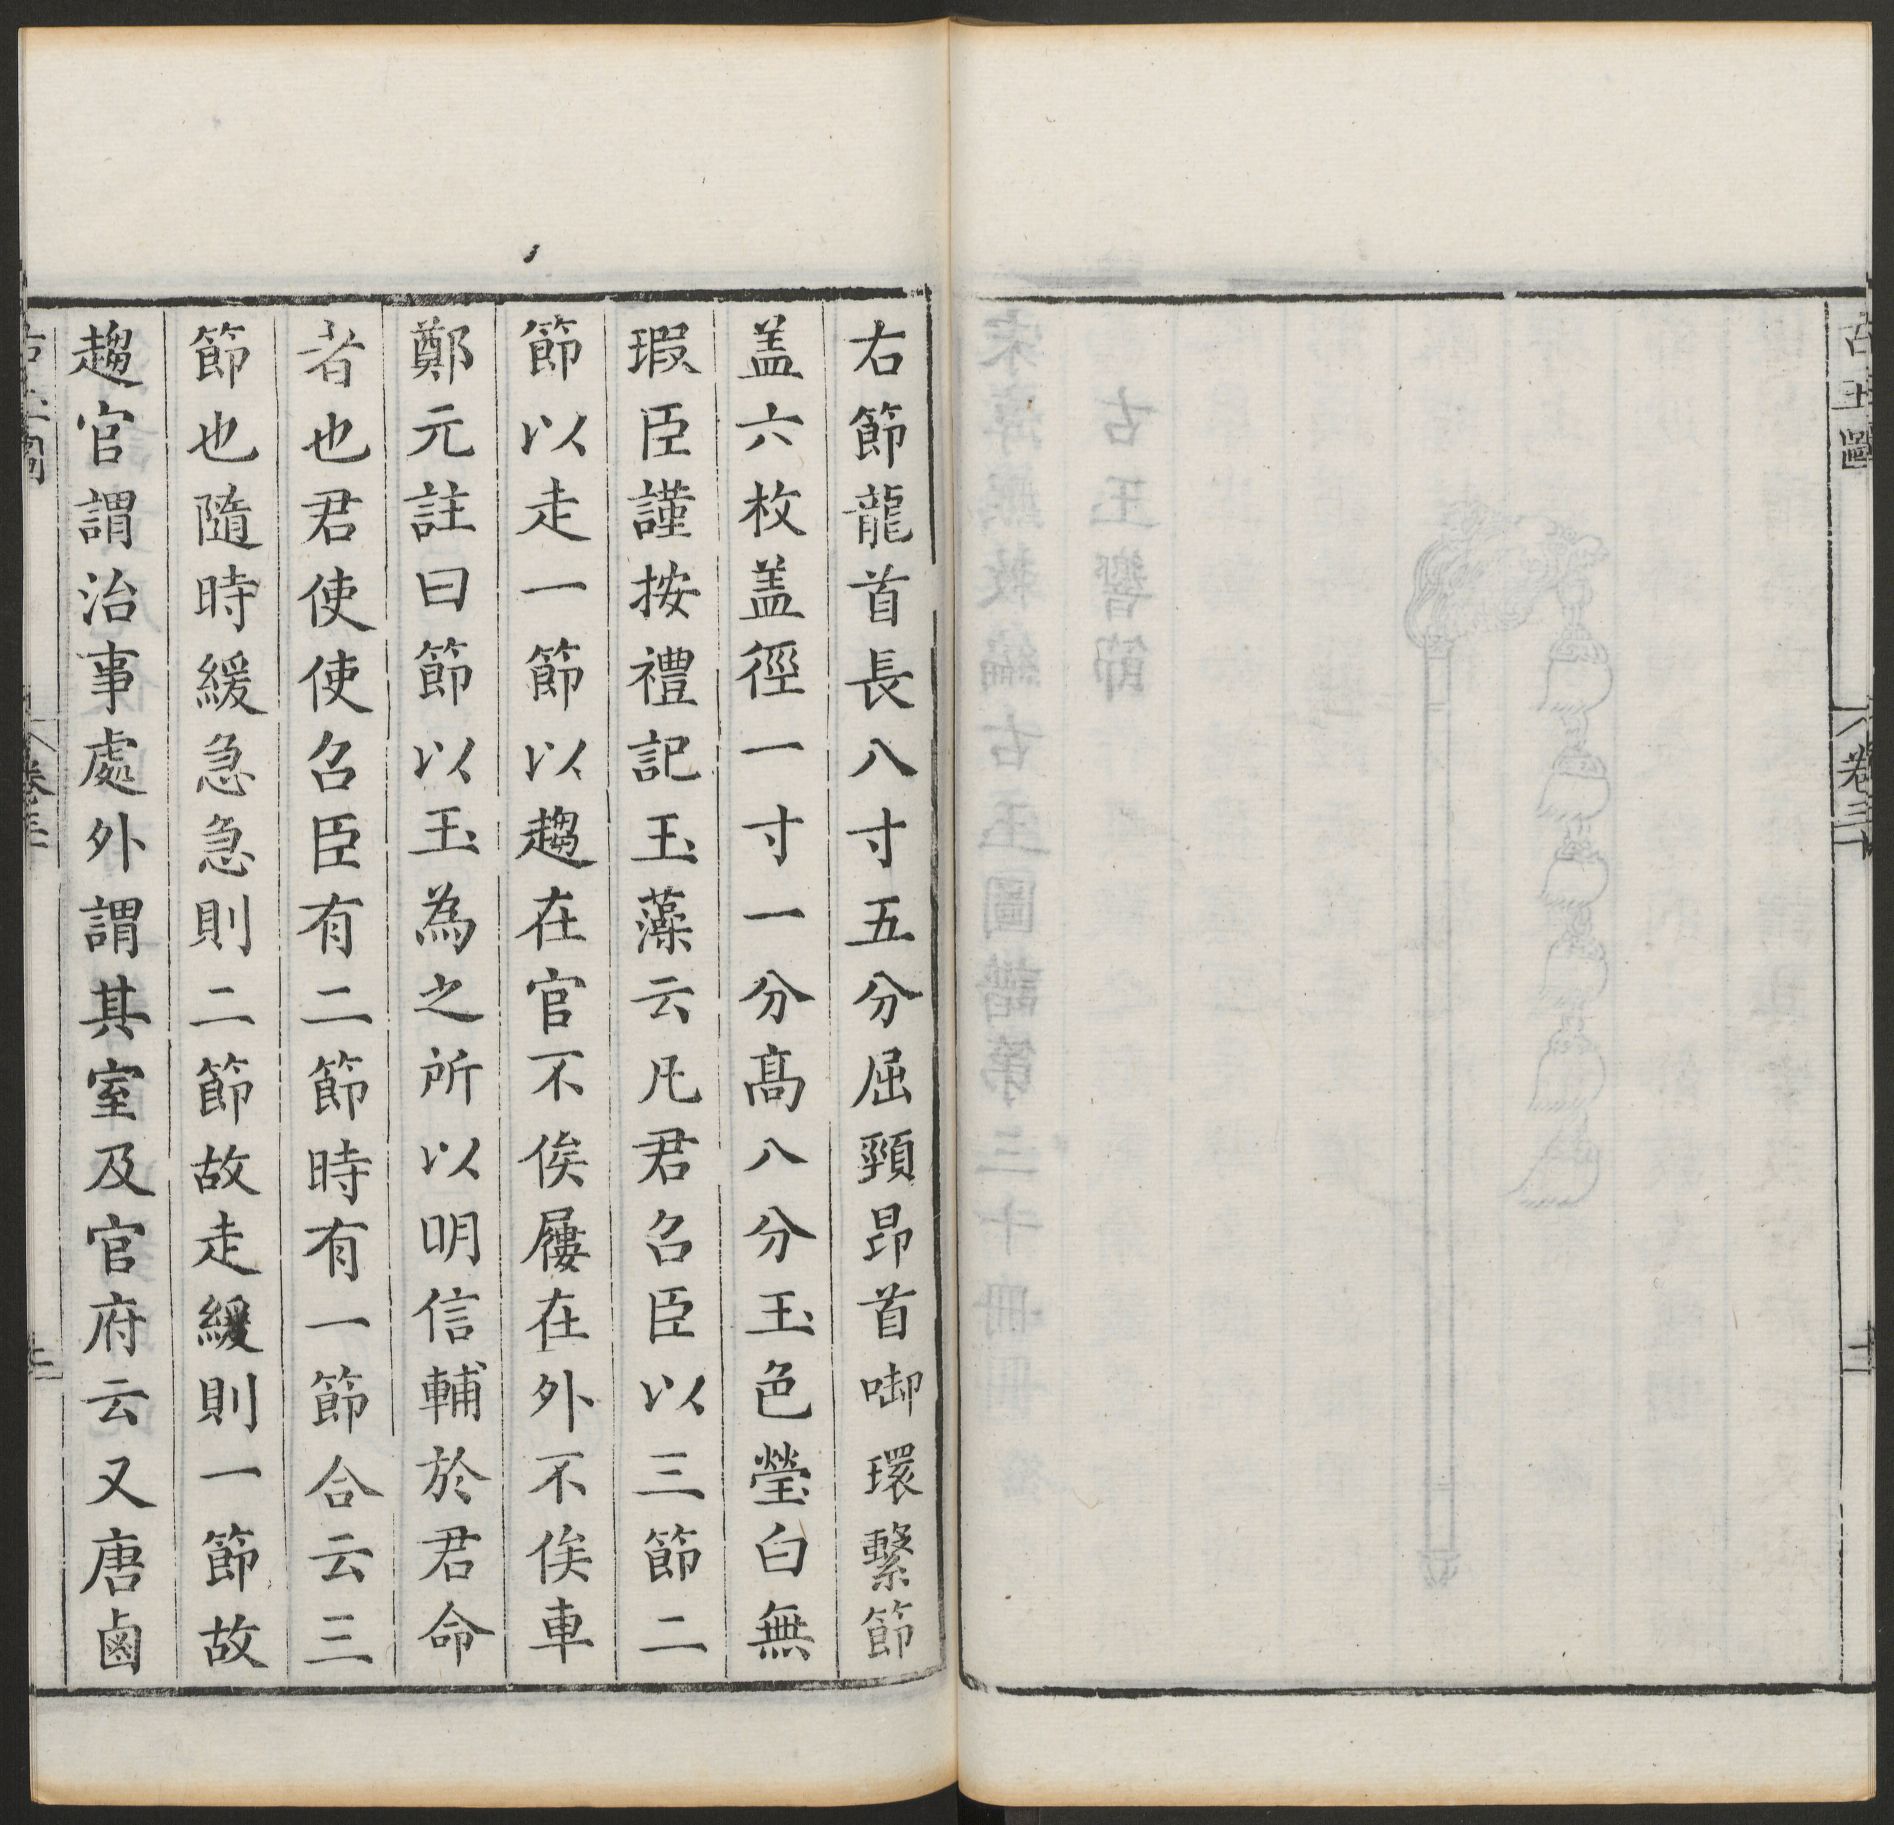 右節龍首長八寸五分屈頸昂首啣環繫節
盖六枚盖徑一寸一分高八分玉色瑩白無
瑕臣謹按禮記玉藻云凡君召臣以三節二
節以走一節以趨在官不俟屨在外不俟車
鄭元註曰節以玉為之所以明信輔於君命
者也君使使召臣有二節時有一節合云三
節也隨時緩急急則二節故走緩則一節故
趨官謂治事處外謂其室及官府云又唐鹵